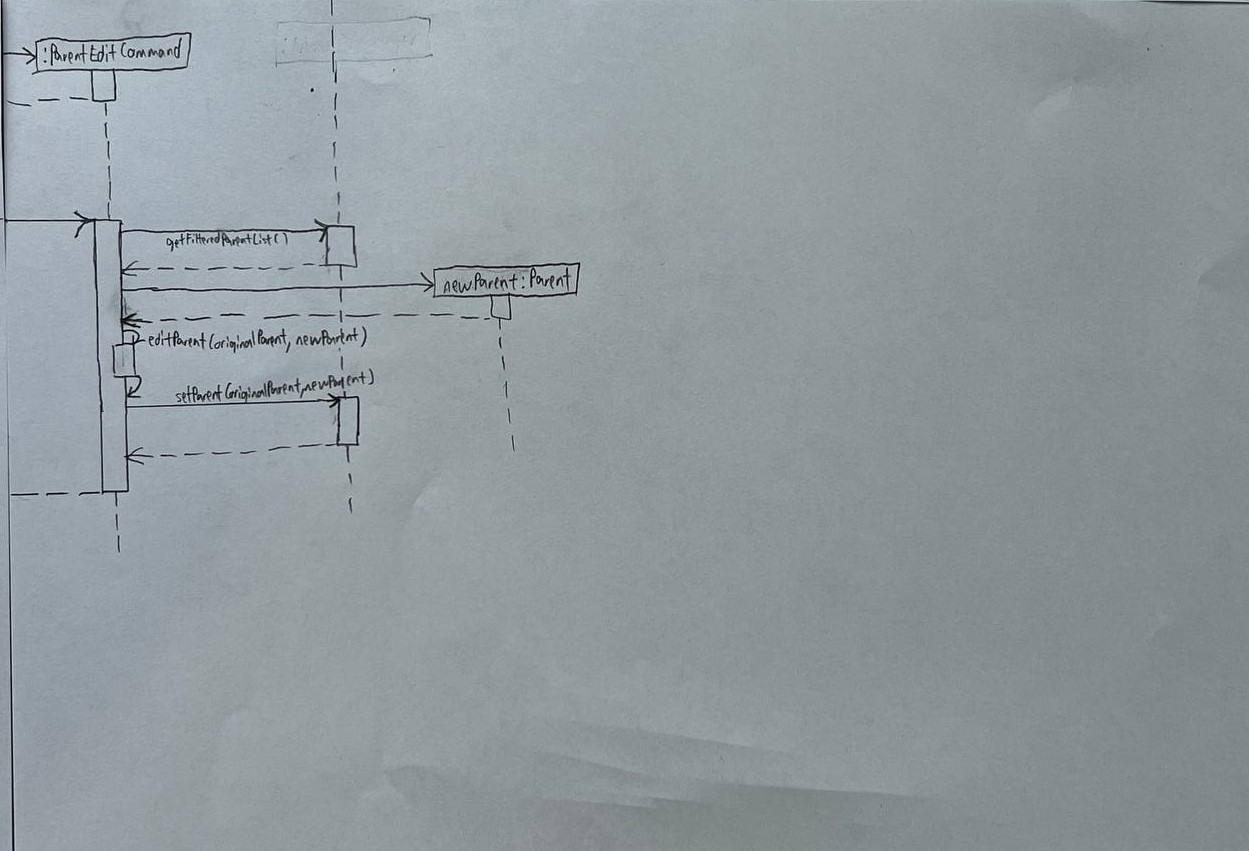 :ParentEditCommand
getFilteredParentList()
newParent:Parent
editParent(originalParent, newParent)
setParent(originalParent,newParent)